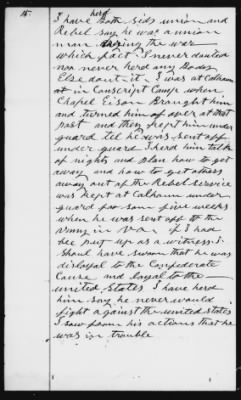 15.
herd
I have both sids union and
Rebel say he was a union
man during the war
which fact I never douted
nor never herd any body
Else dout it. I was at Calhoun
at in Conscript Camp when
Chapel Eison Brought him
and turned him over at that
post and they kept him under
guard till he was sent off
under guard I herd him talk
of nights and plan how to get
away and how to get others
away out of the Rebel Service
was kept at Calhoun under
guard for som five weeks
when he was sent off to the
army in Va. if I had
bee put up as a witness I
Should have sworn that he was
disloyal to the Confederate
Cause and loyal to the
united States I have herd
him say he never would
fight against the united states
I saw from his actions that he
was in trouble